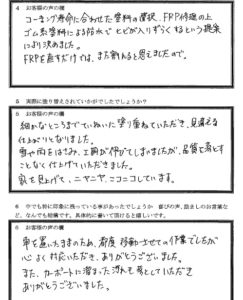 4 お客様の声の欄
コーキング寿命に合わせた塗料の選択、FRP修理の上
ゴム系塗料による防水で ヒビが入りずらくするという提案
により決めました。
FRPを直すだけでは、また割れると思えましたので。
5 実際に塗り替えされていかがでしたでしょうか?
5 お客様の声の欄
細かなところまでていねいに塗り重ねていただき、見違える
仕上がりとなりました。
雪や雨をはさみ、工期が伸びてしまいましたが、品質を落とす
ことなく仕上げていただきました。
家を見上げて、ニヤニヤ、ニコニコしています。
6 今でも特に印象に残っている事があったでしょうか 喜びの声、励ましのお言葉な
ど、なんでも結構です。具体的に書いて頂けると嬉しいです。
6 お客様の声の欄
車を置いたままのため、都度 移動させての作業でしたが
心よく対応いただき、ありがとうございました。
また、カーポートに溜まった汚れも落としていただき
ありがとうございました。